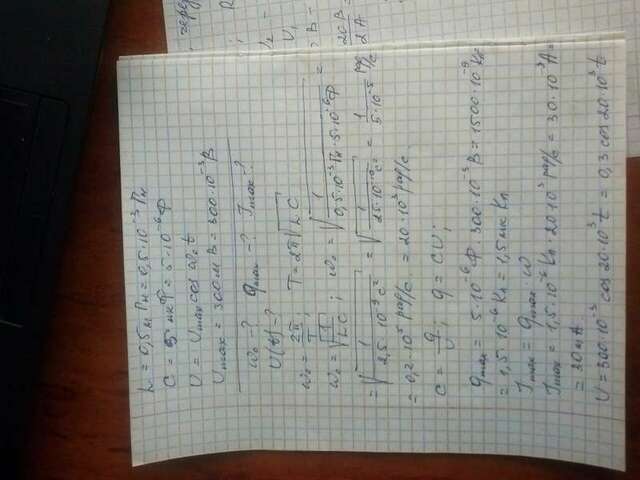 L = 0,5 мГн = 0,5·10⁻³ Гн
C = 5 мкФ = 5·10⁻⁶ Ф
U = Umax cos ω₀ t
Umax = 300 мВ = 300·10⁻³ В
ω₀ - ? qmax - ? Imax - ?
U(t) - ?
ω₀ = 2π/T; T = 2π√LC;
ω₀ = √1/LC; ω₀ = √1/0,5·10⁻³ Гн·5·10⁻⁶ Ф =
= √1/2,5·10⁻⁹ с² = √1/25·10⁻¹⁰ с² = 1/5·10⁻⁵ рад/с
= 0,2·10⁵ рад/с. = 20·10³ рад/с.
C = q/U; q = CU;
qmax = 5·10⁻⁶ Ф·300·10⁻³ В = 1500·10⁻⁹ Кл
= 1,5·10⁻⁶ Кл = 1,5 мкКл
Imax = qmax·ω
Imax = 1,5·10⁻⁶ Кл·20·10³ рад/с = 30·10⁻³ А =
= 30 мА.
U = 300·10⁻³ cos 20·10³ t = 0,3 cos 20·10³ t
через
R
U₁
20 В
2 А